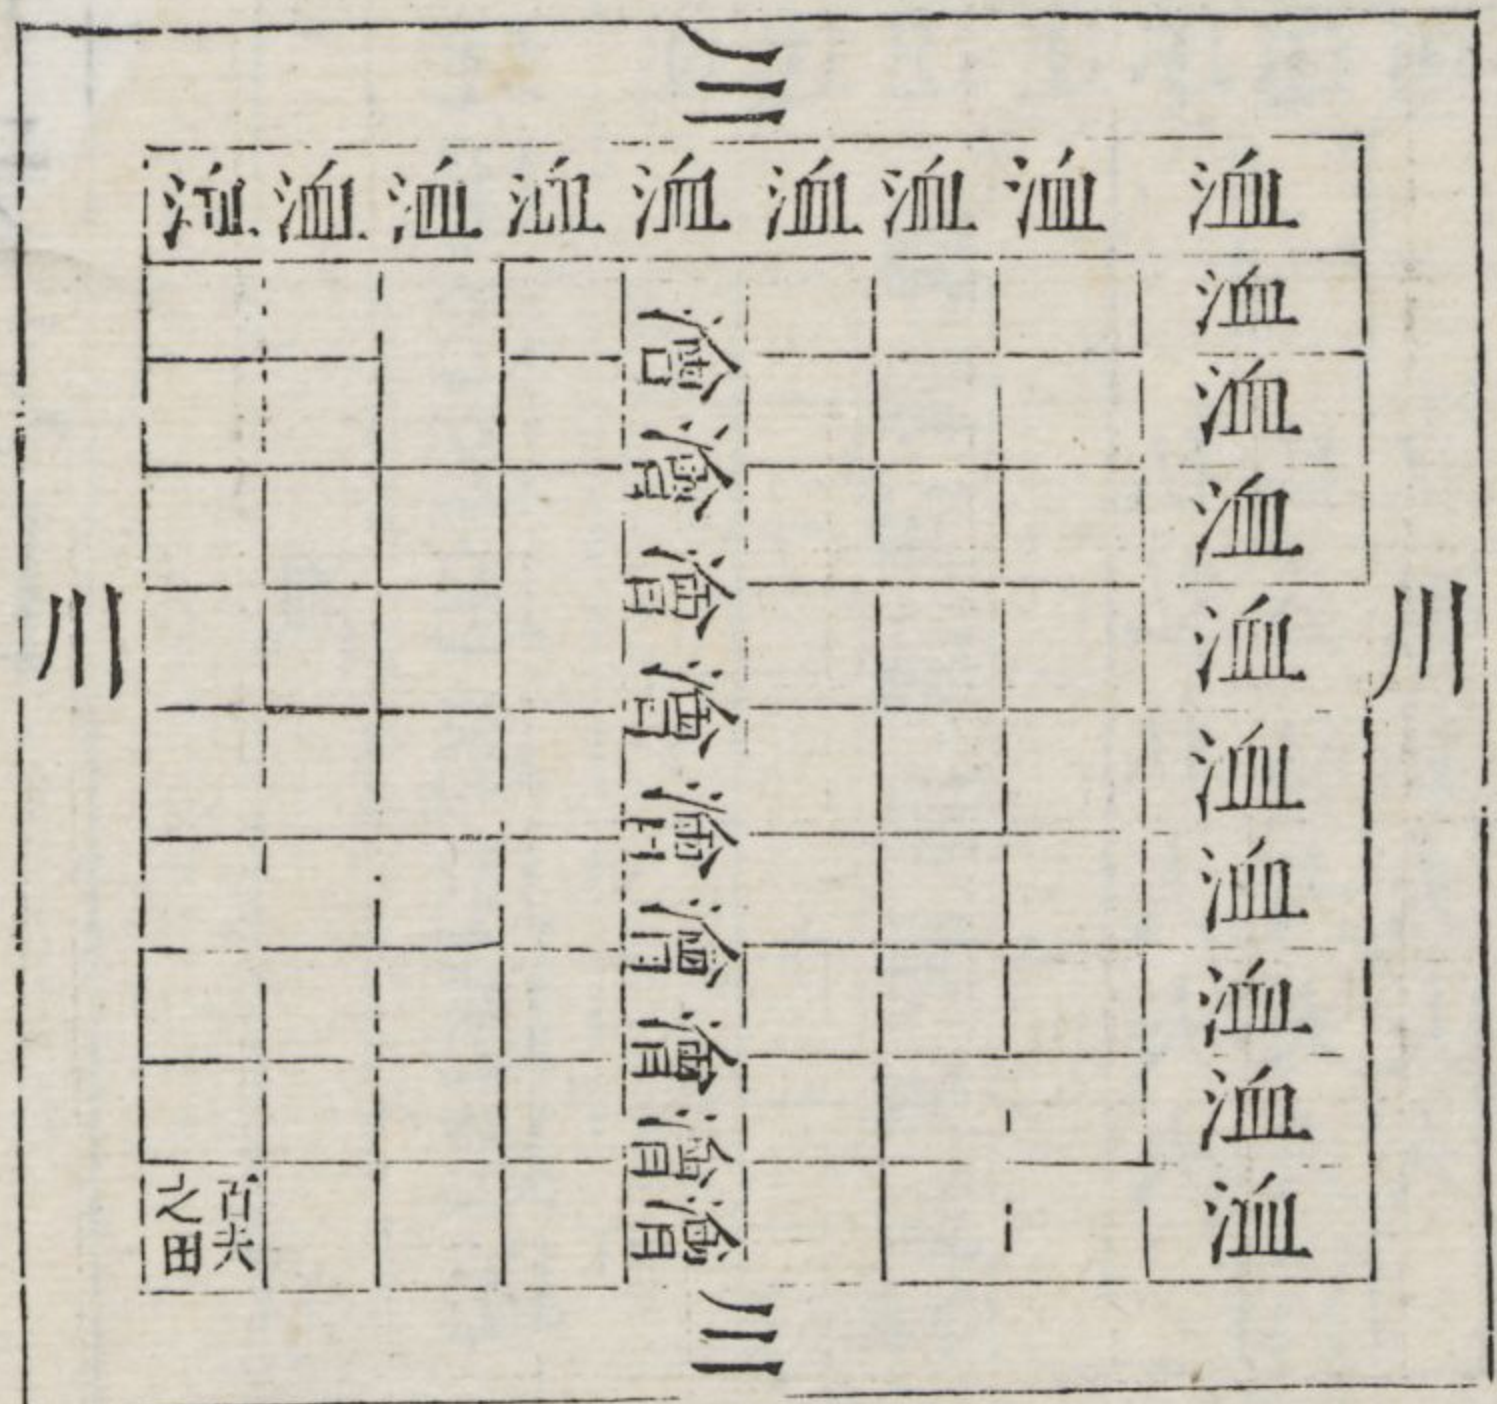 川
洫洫洫洫洫洫洫洫洫
洫洫洫洫洫洫洫洫洫
川
澮澮澮澮澮澮澮澮澮
川
百夫
之田
川